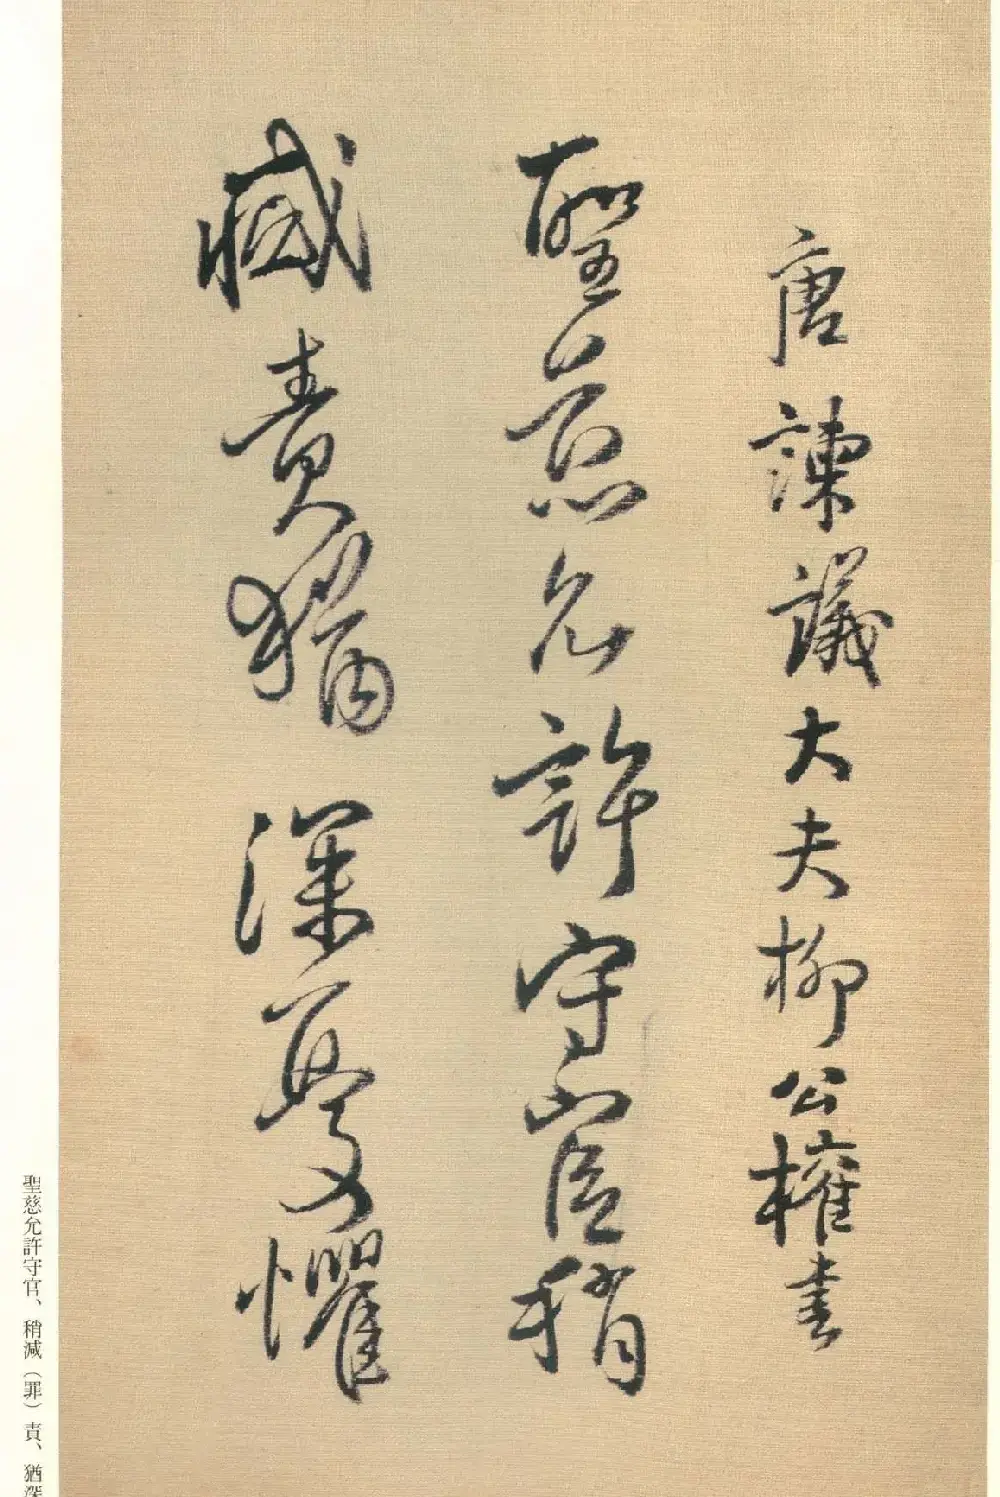 唐諫議大夫柳公權書
聖慈允許守官稍
減責猶深憂懼
聖慈允許守官、稍減（罪）責、猶深